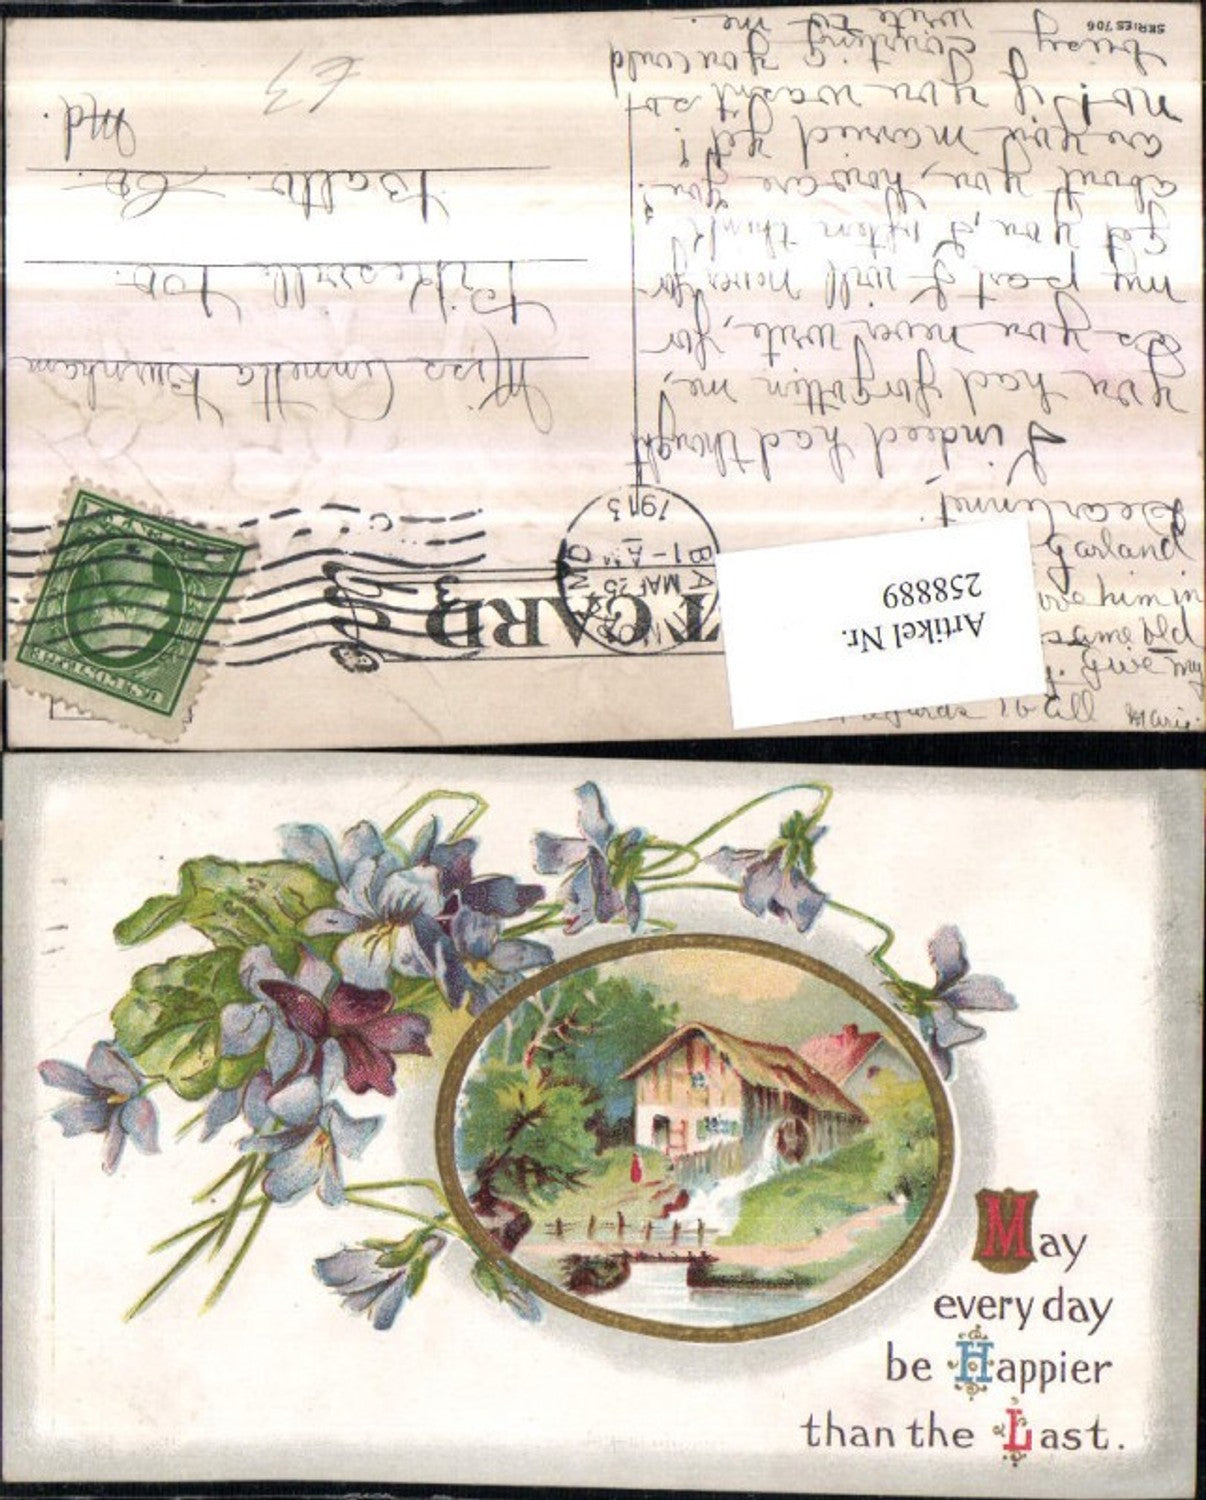 SERIES 706
Dear Annet
I indeed had thought
you had forgotten me,
as you never write, for
my part I will never for
get you, I often think
about you, how are you?
are you married yet?
no! If you wasn't so
busy courting you could
write to me.
Marie.
give my
same old
him in
Garland
to all
POST CARD
MAR 25
1-A
1913
MD
Miss Annetta Burnham
Pikesville P.O.
Balto. Co.
Md.
63
Artikel Nr.
258889
May
every day
be Happier
than the Last.